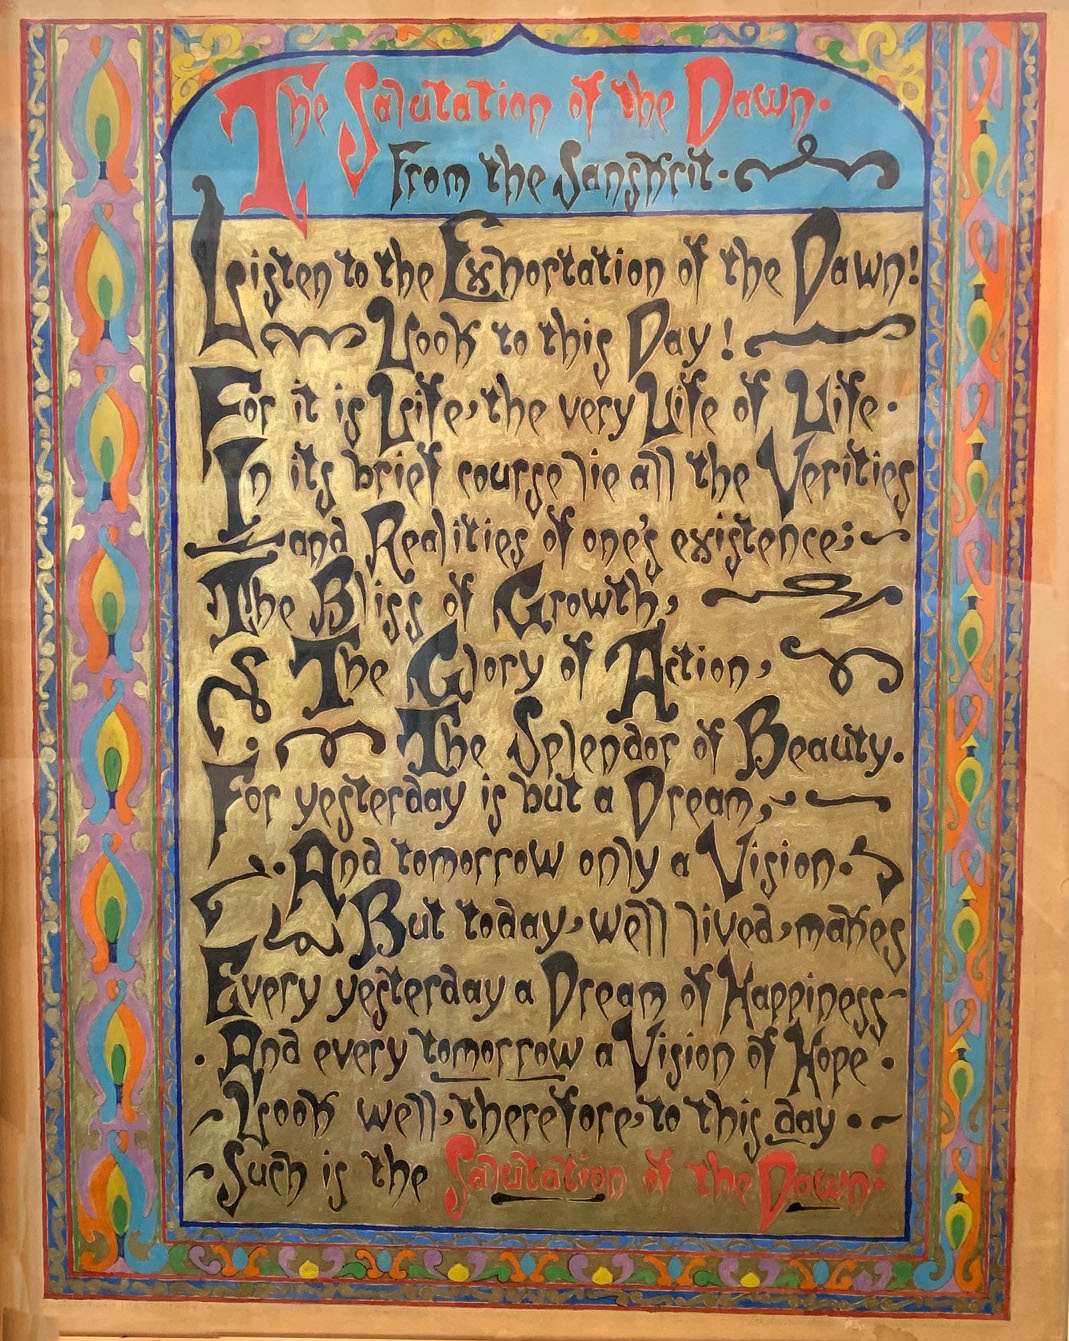 The Salutation of the Dawn.
From the Sanskrit.
Listen to the Exhortation of the Dawn!
Look to this Day!
For it is Life, the very Life of Life.
In its brief course lie all the Verities
and Realities of one's existence;
The Bliss of Growth,
The Glory of Action,
The Splendor of Beauty.
For yesterday is but a Dream,
And tomorrow only a Vision.
But today, well lived, makes
Every yesterday a Dream of Happiness
And every tomorrow a Vision of Hope.
Look well, therefore, to this day.
Such is the Salutation of the Dawn!